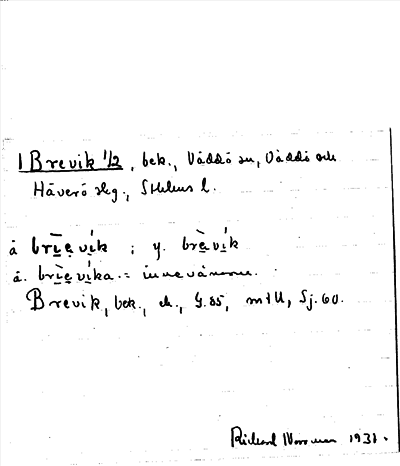 1 Brevik 1/2, bek., Väddö sn, Väddö och
Häverö skg., Sthlms l.
å brìe̯vík ; y. brèvík
ä. brìe̯víka = innevånarna.
Brevik, bek., ek., G. 85, mtU, Sj. 60.
Rickard 1931.